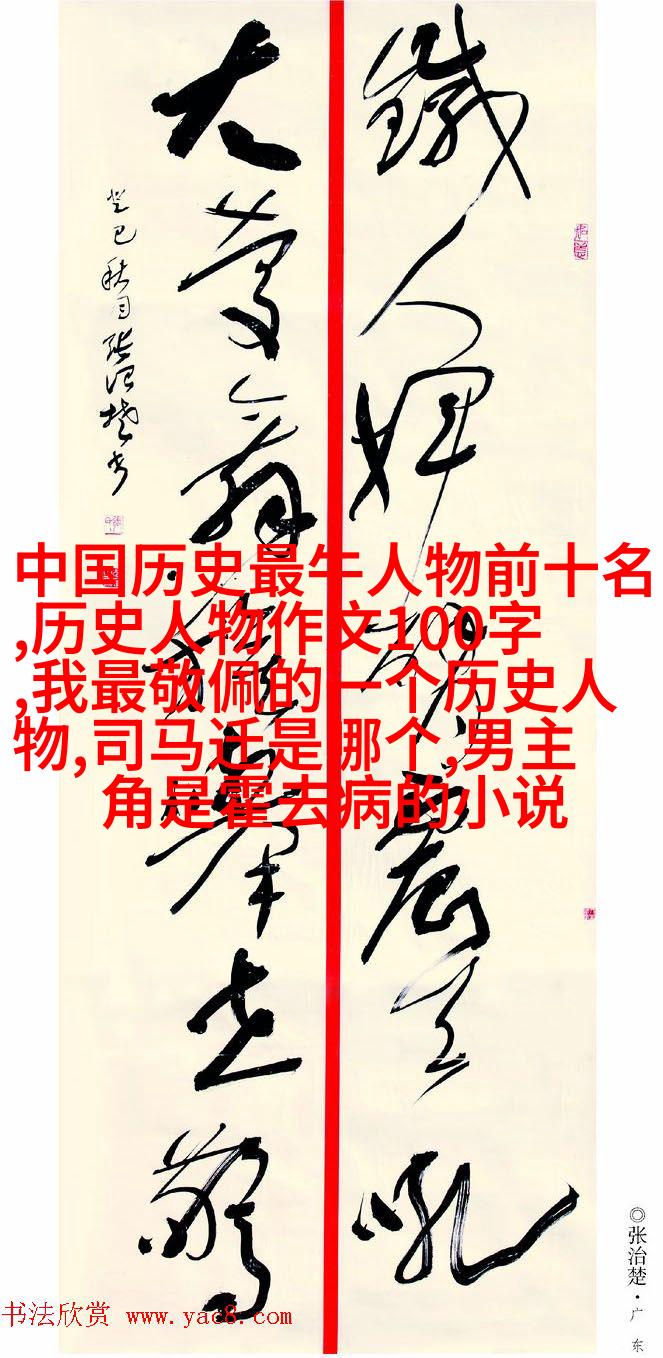 鐵人揮震天吼
大慶舉世驚
癸巳秋月張治楚書
中国历史最牛人物前十名
,历史人物作文100字
,我最敬佩的一个历史人
物,司马迁是哪个,男主
角是霍去病的小说
◎张治楚·广东
书法欣赏 www.yac8.com